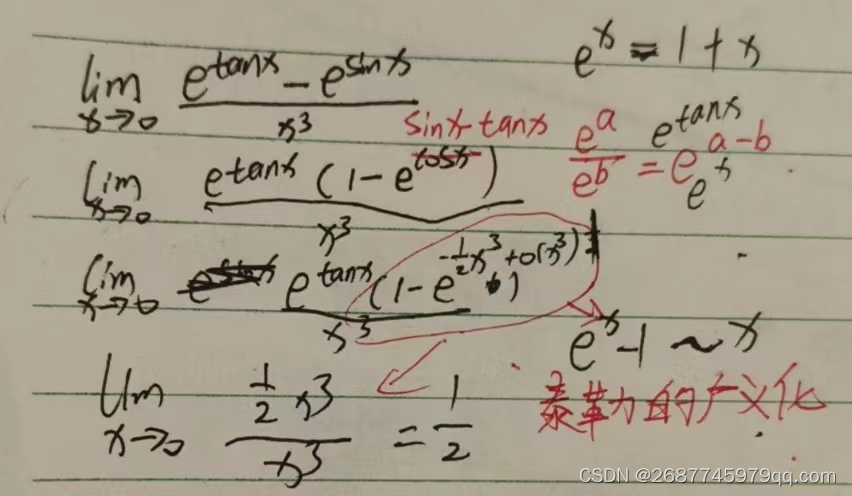 lim x→0 (e^tanx − e^sinx) / x³
e^x = 1 + x
sinx-tanx
e^a / e^b = e^a-b
e^tanx
e^x
lim x→0 e^tanx (1 − e^cosx) / x³
lim x→0 e^tanx (1 − e^(-1/2 x³ + o(x³))) / x³
e^x − 1 ~ x
lim x→0 (1/2 x³) / x³ = 1/2
泰革力的广义化
CSDN @2687745979qq.com